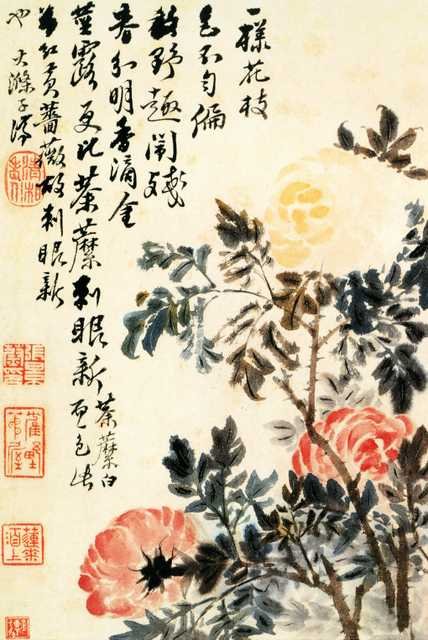 一樣花枝
色不勻偏
野趣鬧殘
春分明香滴金
莖露更比荼蘼刺眼新荼蘼白而色
紅黃薔薇故刺眼新
也大滌子濟
清湘老人